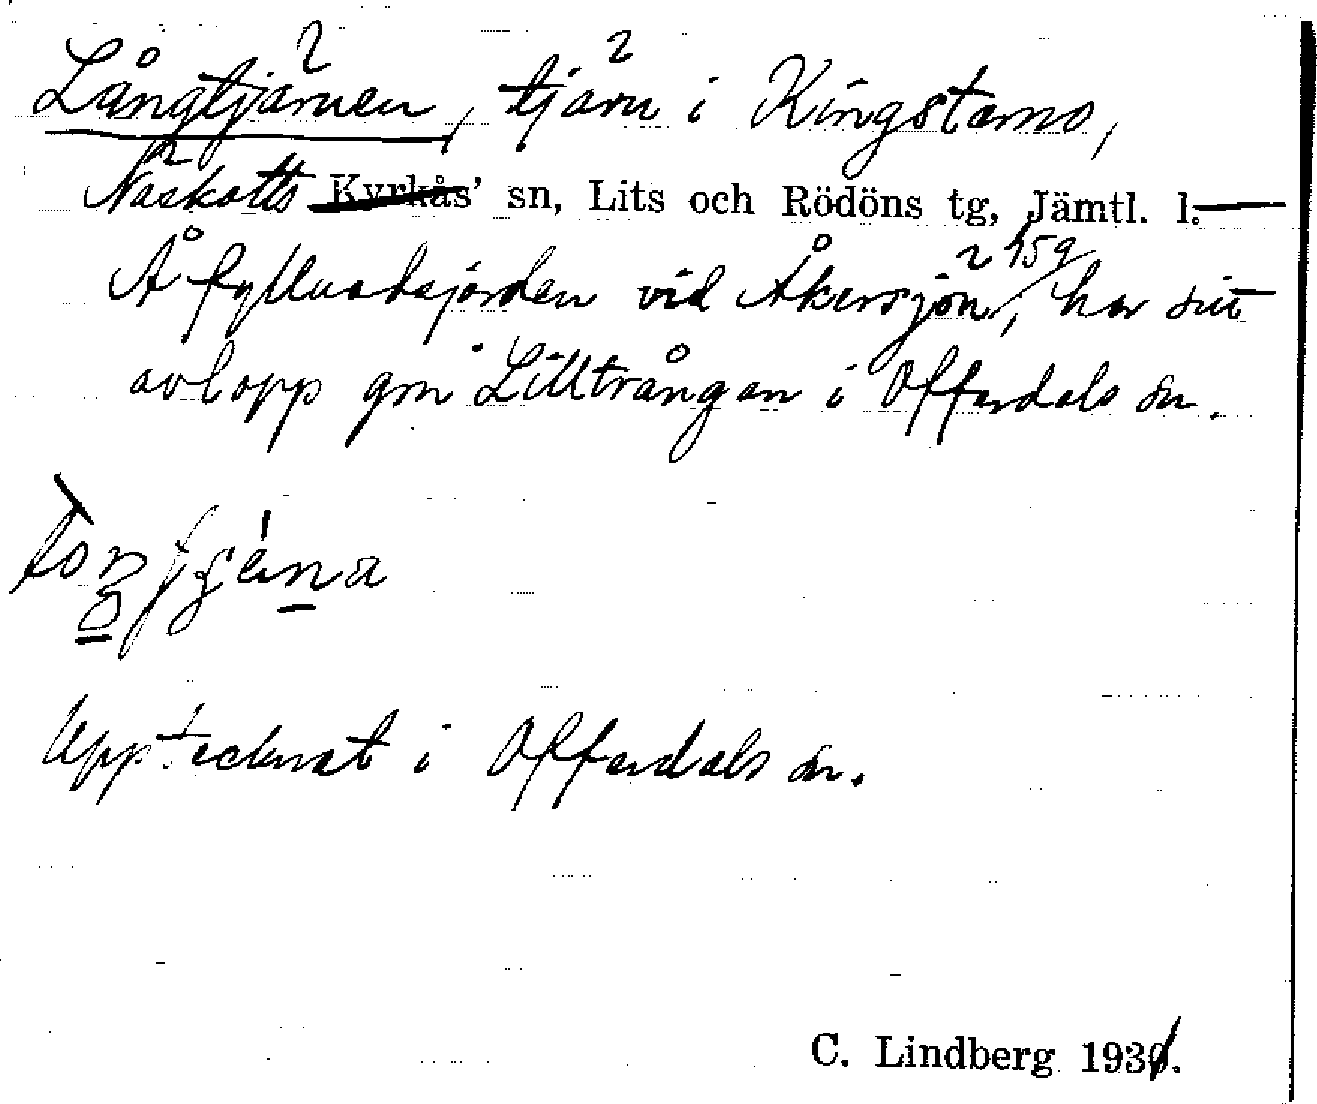 Långtjärnen, tjärn i Kingstamo,
Näskotts Kyrkås' sn, Lits och Rödöns tg, Jämtl. l.
Å fyllnadsjorden vid Åkersjön, 159 har sitt
avlopp gm Lilltrångan i Offerdals sn.
Upptecknat i Offerdals sn.
C. Lindberg 1931.